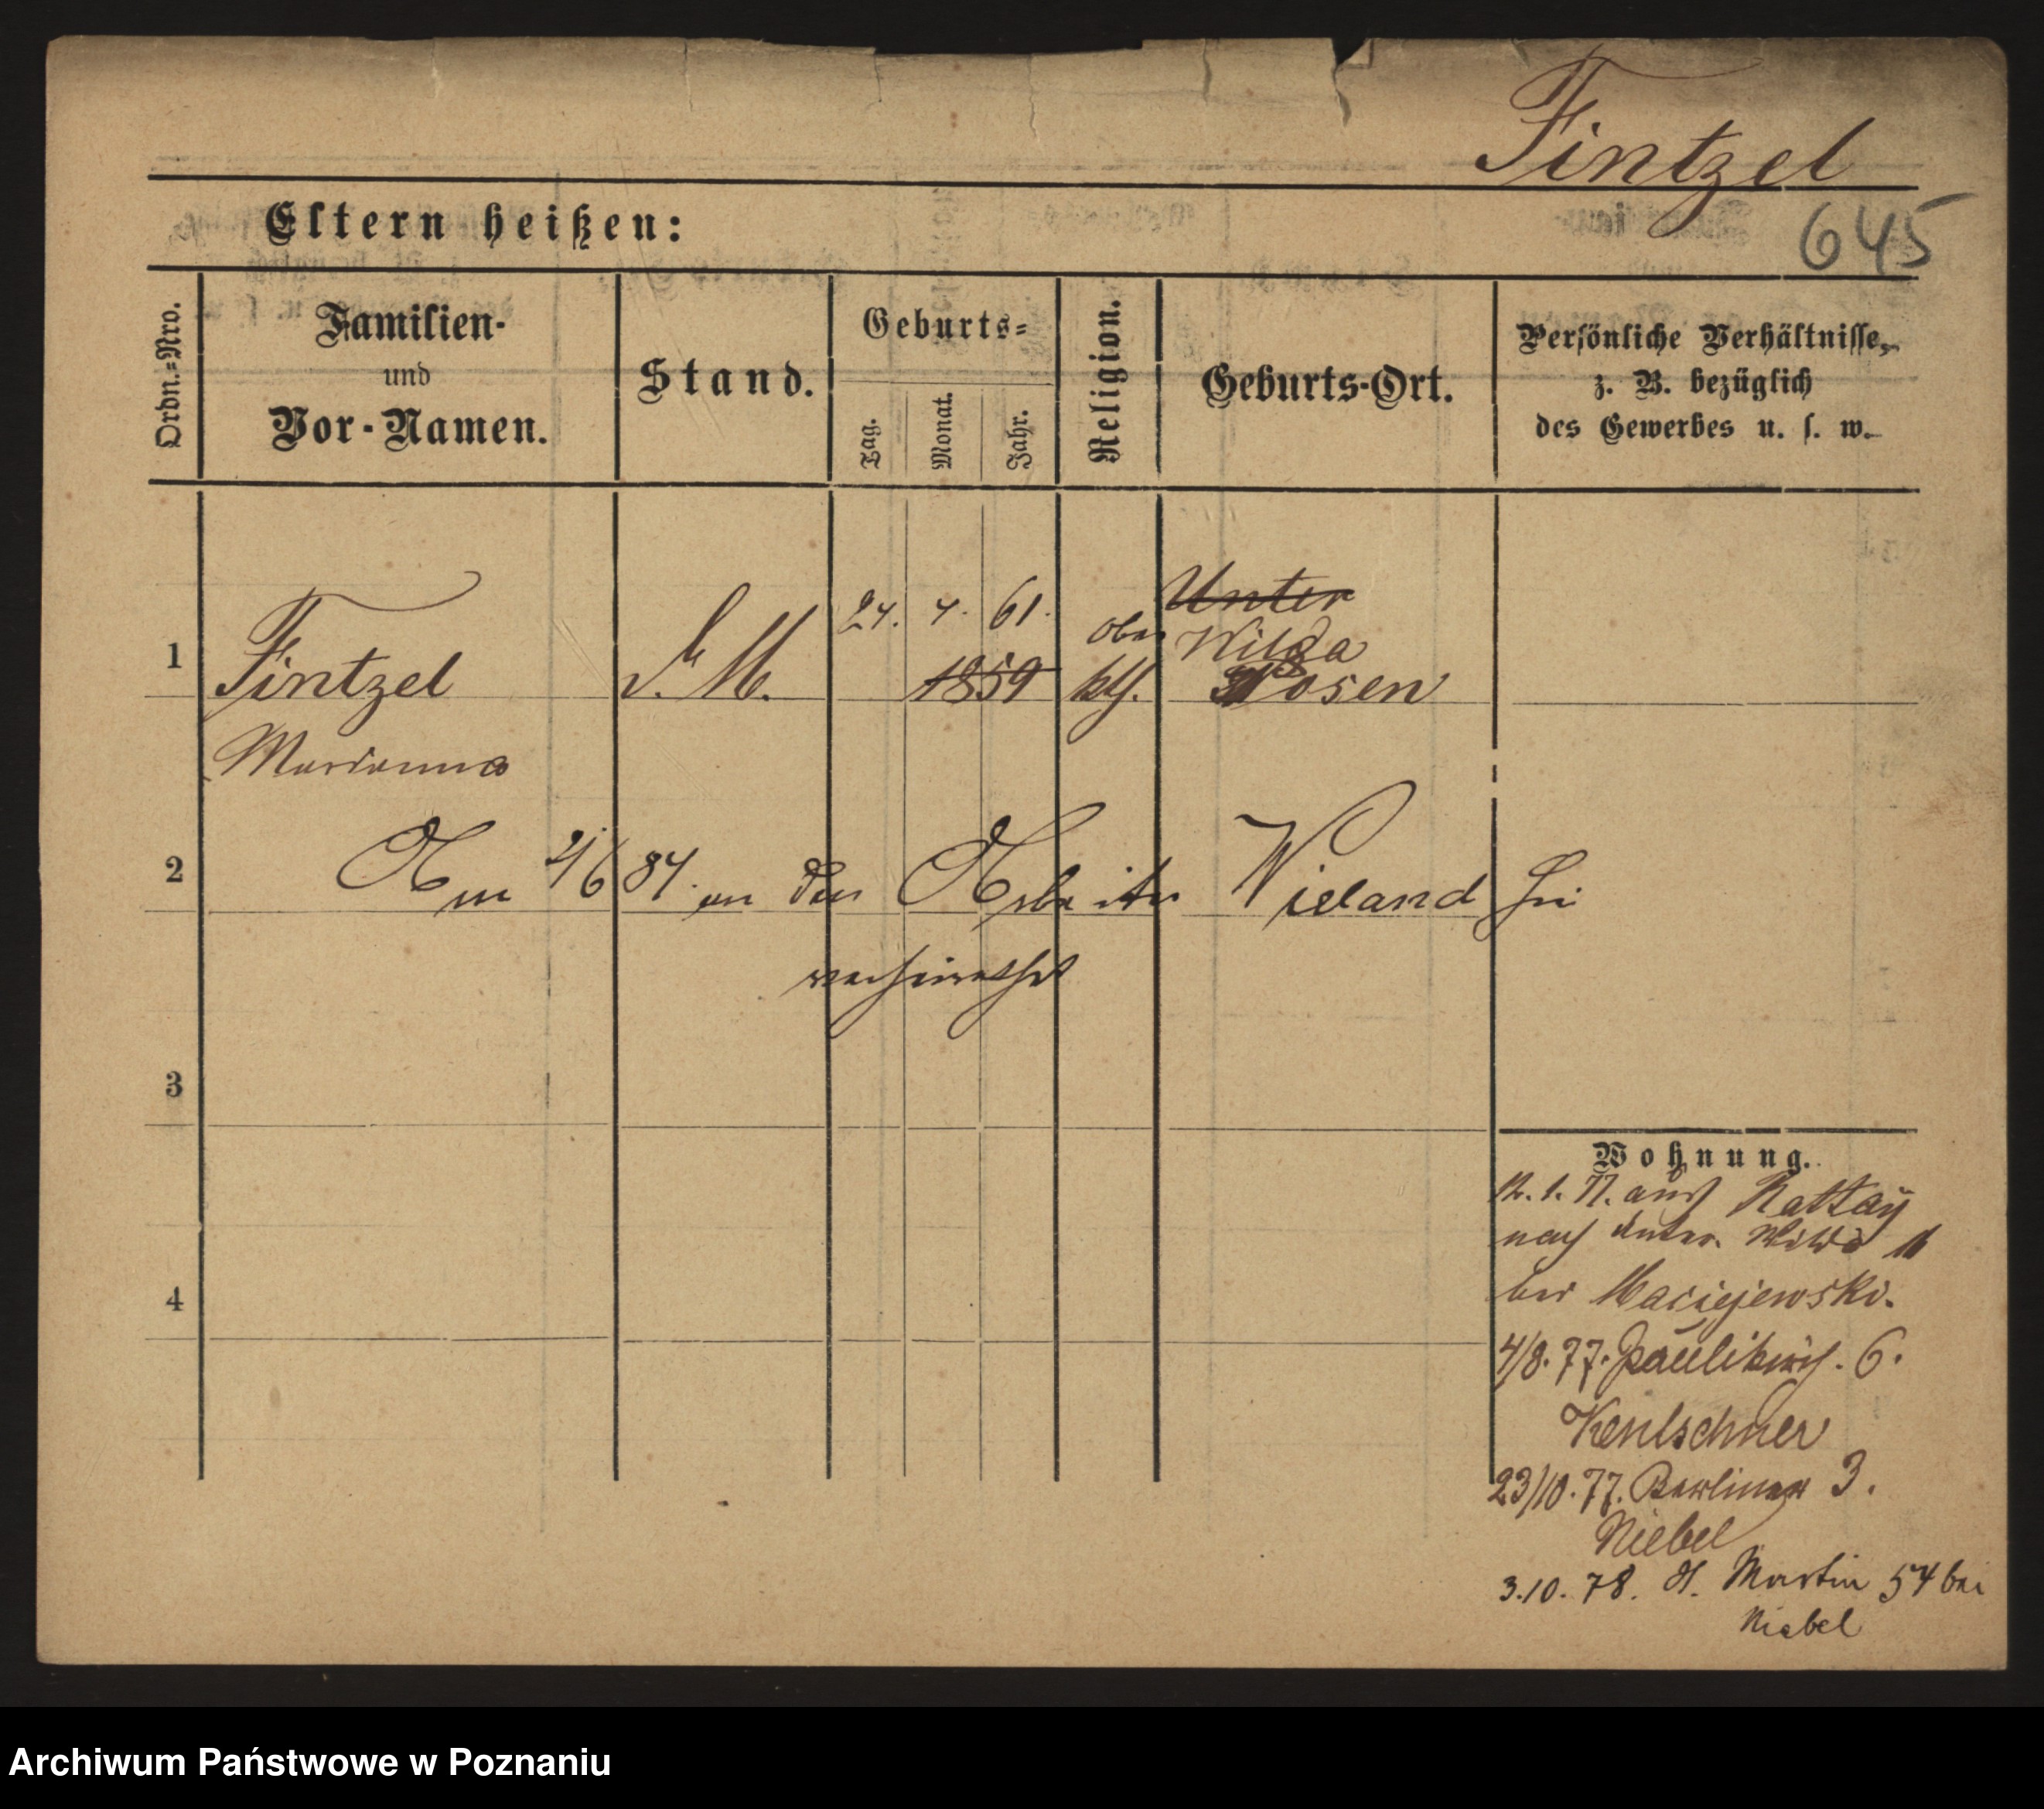 Fintzel
645
Eltern heißen:
Ordn.-Nro.
Familien-
und
Vor-Namen.
Stand.
Geburts-
Tag.
Monat.
Jahr.
Religion.
Geburts-Ort.
Persönliche Verhältnisse,
z. B. bezüglich
des Gewerbes u. s. w.
1
Fintzel
Marianna
D. M.
24. 4. 61.
1859
kth.
Unter
Ober Wilda
Posen
2
Am 2/6 84. an den Arbeiter Wieland hie
verheirathet
3
4
Wohnung.
12. 1. 77. aus Rattay
nach Unter. Wilda
bei Maciejewski.
4/8. 77. Paulikirch. 6.
23/10. 77. Berliner 3.
Niebel
3.10. 78. St. Martin 54 bei
Niebel
Archiwum Państwowe w Poznaniu